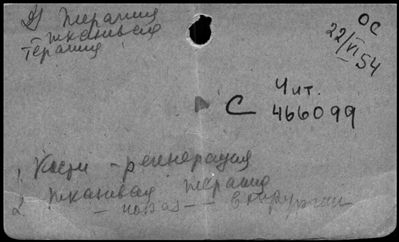 2) Терапия
тканевая
терапия
ОС
22/VI 54
Чит.
С 466099
1. Кости - регенерация
2. Тканевая терапия
— показ — в хирургии